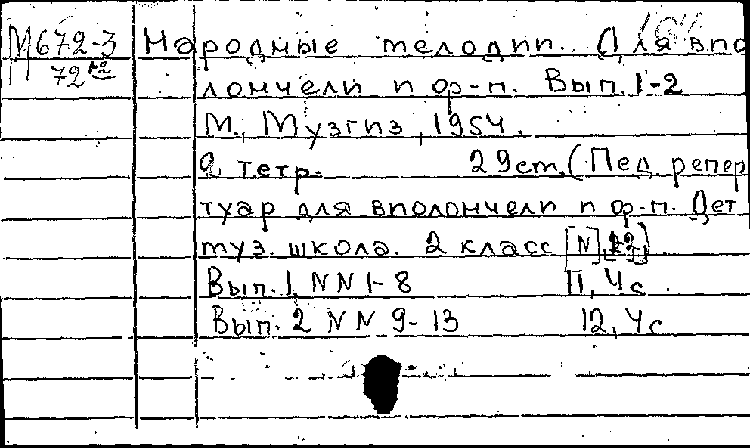 М672-3 Народные мелодии. Для вио
72
лончели и ф-п. Вып. 1-2
М., Музгиз, 1954.
2 тетр. 29cm. (Пед. репер
туар для виолончели и ф-п. Дет.
муз. школа. 2 класс [N]
Вып. 1. NN 1-8 11, 4 с.
Вып. 2 NN 9-13 12, 4 с